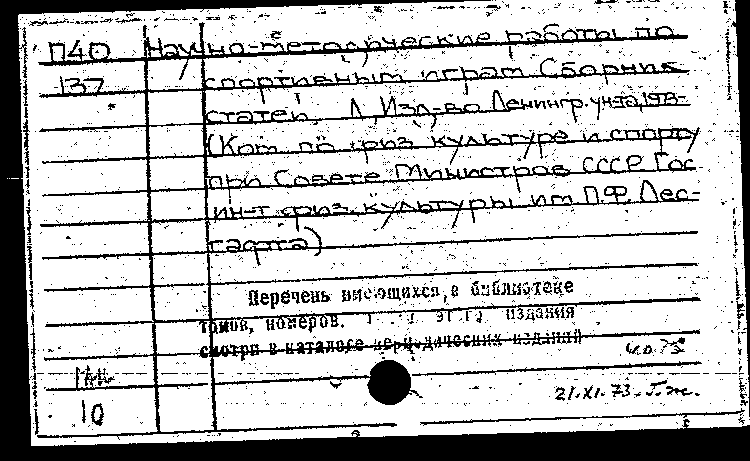 П40 Научно-методические работы по
137 спортивным играм. Сборник
статей. Л., Изд-во Ленингр. ун-та, 197
(Ком. по физ. культуре и спорту
при Совете Министров СССР. Гос.
ин-т физ. культуры им. П.Ф. Лес-
гафта)
Перечень имеющихся в библиотеке
томов, номеров. издания
смотри в каталоге периодических изданий
10
21.XI.73.